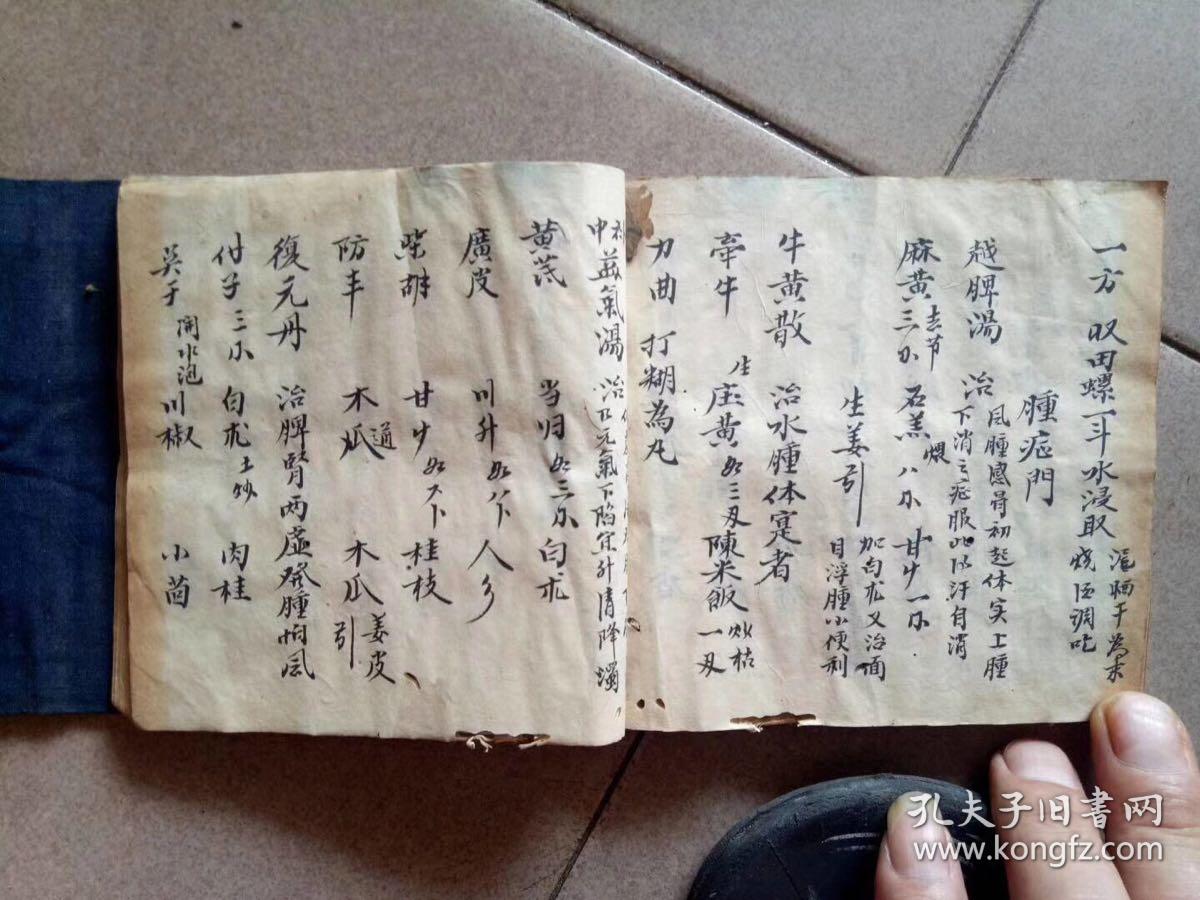 一方 取田螺一斗水浸取
泥晒干為末
燒酒調吃
腫症門
越脾湯 治
風腫感骨初起体实上腫
下消之症服此以汗自消
麻黄去节三 石羔煨八 甘 一
生姜引
加白朮又治面
目浮腫小便利
牛黄散 治水腫体寔者
牽牛 生庄黄 三 陳米飯炒枯一
刀曲 打糊為丸
中 氣湯 治 元氣下陷宜升清降濁
黄芪 当归 三 白朮
廣皮 川升
柴胡 甘 桂枝
防丰 木通 木瓜 木瓜 姜皮引
復元丹 治脾腎两虚發腫怕風
付子三 白朮土炒 肉桂
吴于開水泡 川椒 小茴
孔夫子旧书网
www.kongfz.com